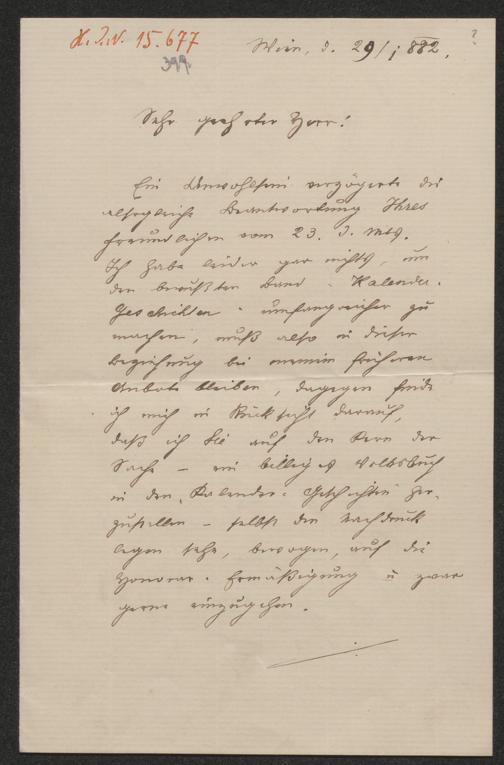 H.I.N. 15.677
399.
?
Wien, d. 29/1 882.
Sehr geehrter Herr!
Ein Unwohlsein verzögerte die
alsogleiche Beantwortung Ihres
freundlichen vom 23. d. Mts.
Ich habe leider gar nichts, um
den bewußten Band "Kalender-
Geschichten" umfangreicher zu
machen, muß also in dieser
Beziehung bei meinem früheren
Anbote bleiben, dagegen finde
ich mich in Rücksicht darauf,
daß ich Sie auf den Kern der
Sache – ein billiges Volksbuch
in den "Kalender-Geschichten" her-
zustellen – selbst den Nachdruck
legen sehe, bewogen, auf die
Honorar-Ermäßigung u zwar
gerne einzugehen.